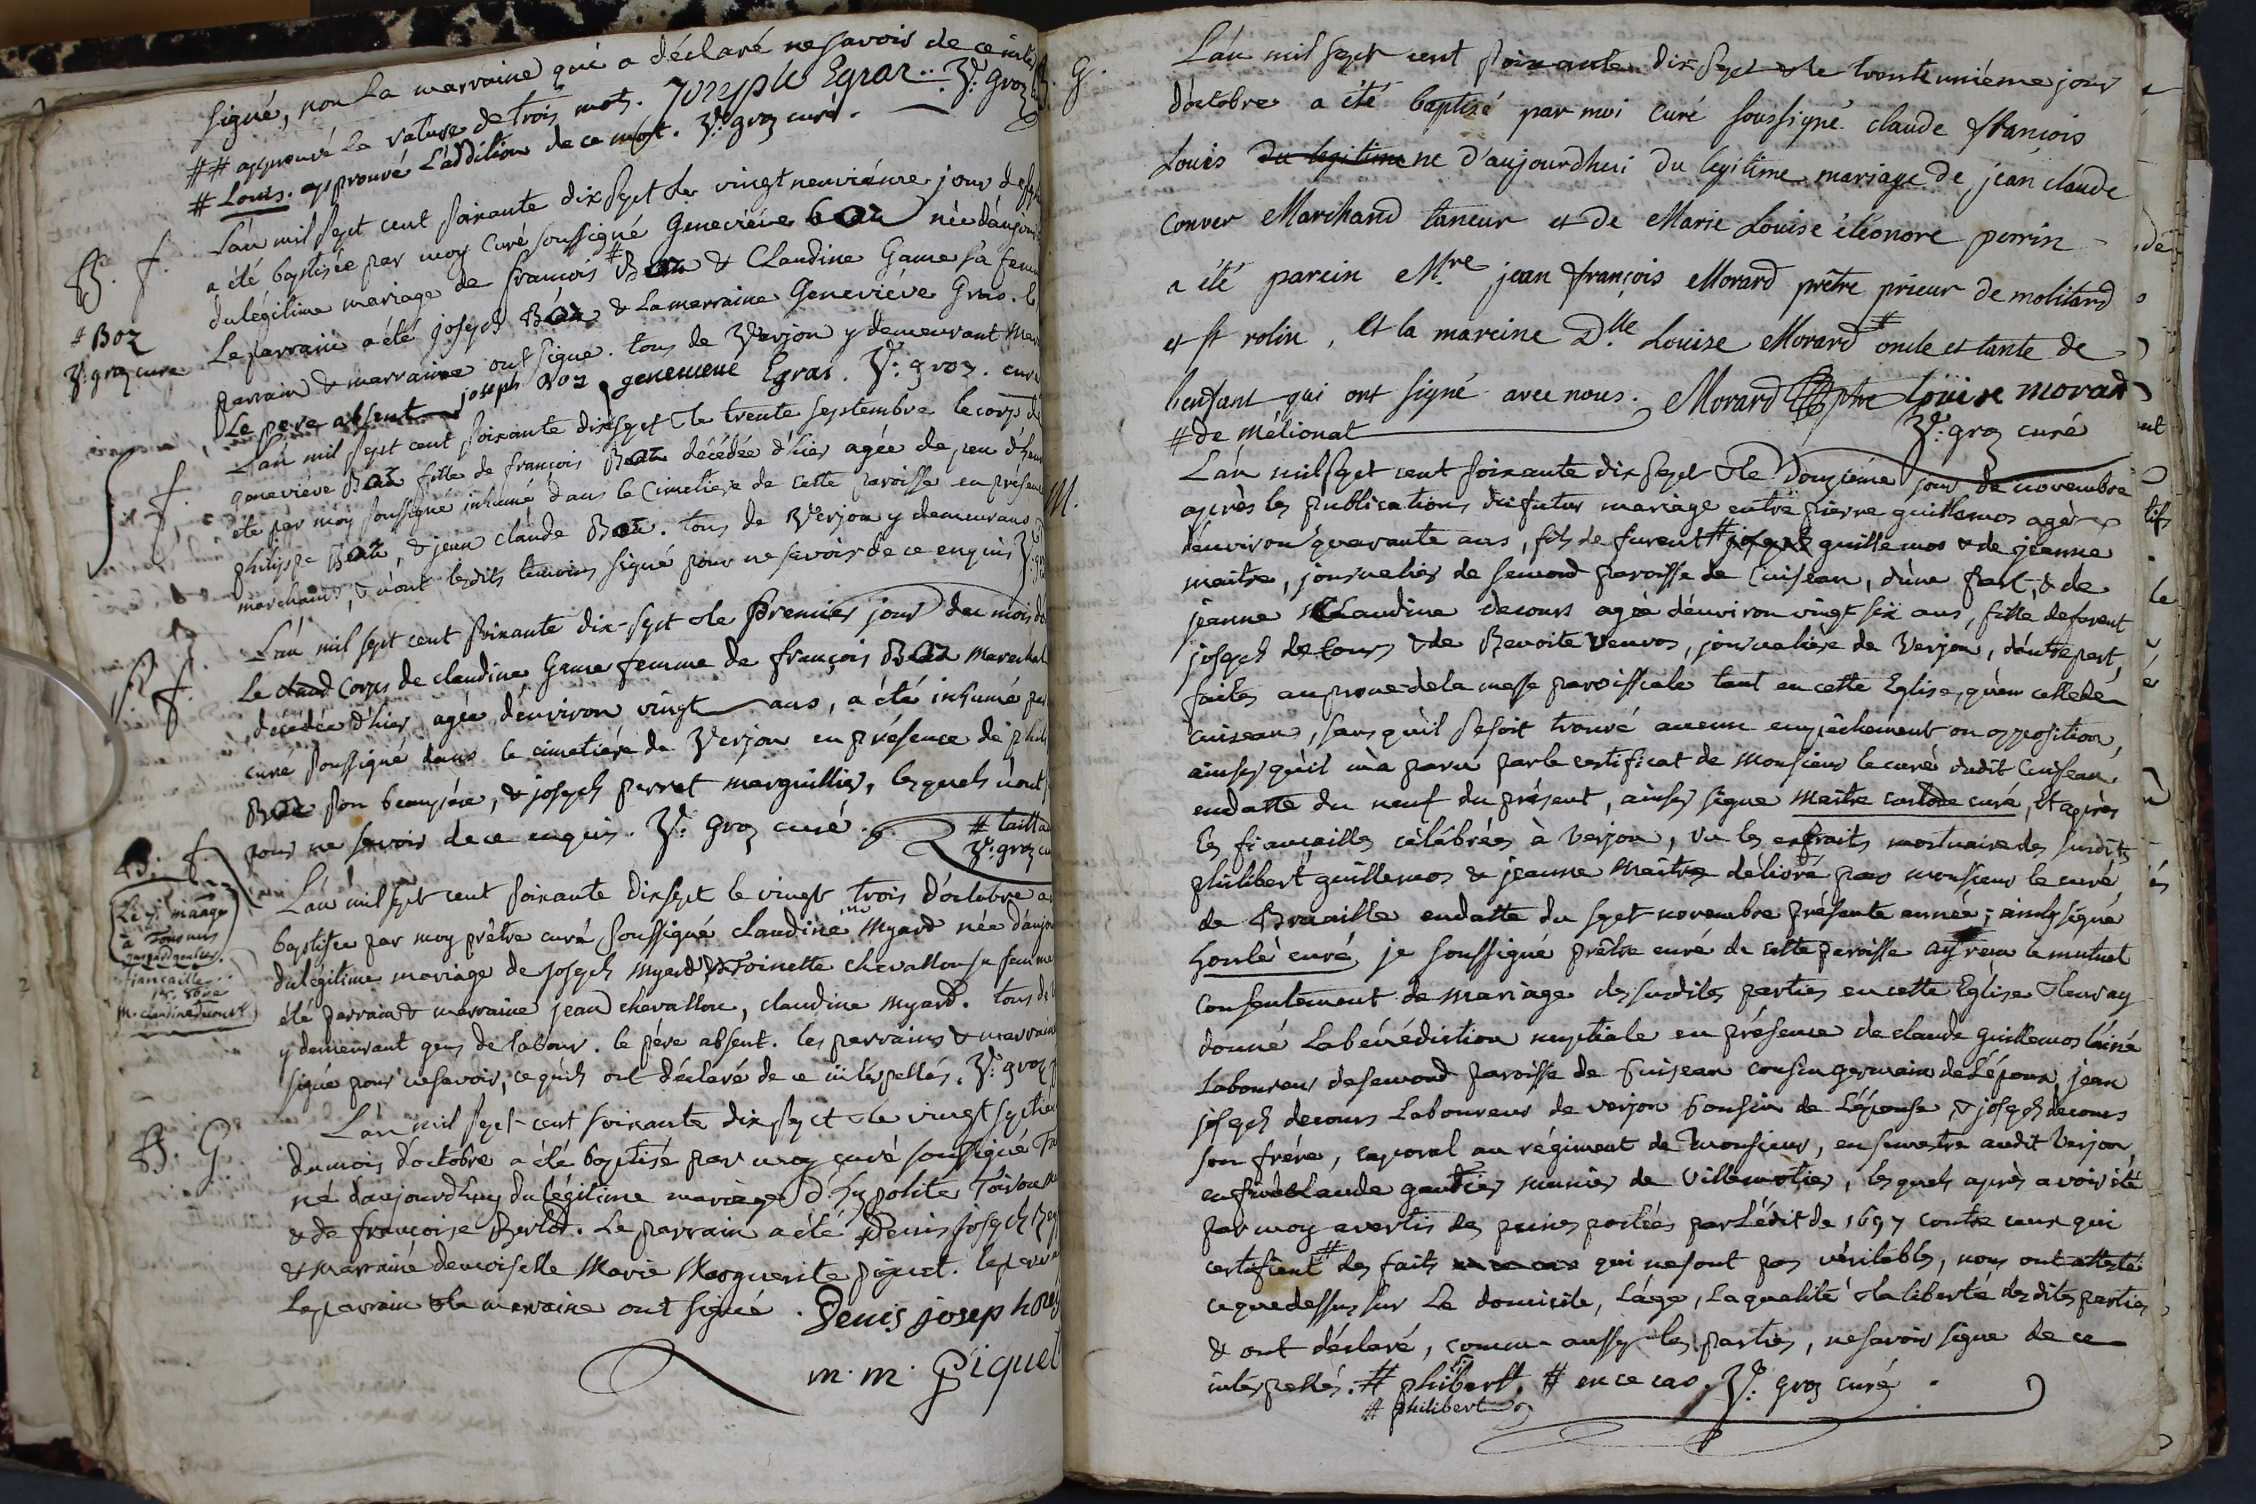 signé, non la marraine qui a déclaré ne savoir de ce
## approuvé la rature de trois mots. Joseph Egraz. Vt. groz
# Louis. approuvé l'addition de ce mot. Vt. groz curé.
B. f.
L'an mil sept cent soixante dix sept & le vingt neuvième jour de
a été baptisée par moy curé soussigné Geneviève Boz née d'aujour
du légitime mariage de françois # Boz & Claudine Game sa fem
# Boz
Vt. groz curé
Le parrain a été joseph Boz & la marraine Geneviève Gras. le
parrain & marraine ont signé. tous de Verjon y demeurant
Le pere absent joseph Boz genevieve Egraz. Vt. groz. curé
S. f.
L'an mil sept cent soixante dix sept & le trente septembre le corps de
geneviève Boz fille de françois Boz décédée d'hier agée de peu d'heu
été par moy soussigné inhumé dans le Cimetiere de cette paroisse en présen
philippe Boz, & jean claude Boz. tous de Verjon y demeurans
marchand, & n'ont lesdits temoins signé pour ne savoir de ce enquis
S. f.
L'an mil sept cent soixante dix-sept & le Premier jour du mois d
Le claud corps de claudine Game femme de françois Boz Marechal
décédée d'hier agée d'environ vingt ans, a été inhumé par
curé soussigné dans le cimetière de Verjon en présence de phili
Boz son beaupère, & joseph perret marguillier, lesquels n'ont
pour ne savoir de ce enquis. Vt. groz curé.
Vt. groz
B. f.
L'an mil sept cent soixante dix sept le vingt trois d'octobre a
baptisée par moy prêtre curé soussigné claudine Myard née d'aujou
du légitime mariage de joseph Myard & Toinette chevallon sa femme
été parrain & marraine jean chevallon, claudine Myard. tous de
y demeurant gens de labour. le père absent. les parrains & marrain
signé pour ne savoir, ce quils ont déclaré de ce interpellés. Vt. groz
B. G.
L'an mil sept-cent soixante dix sept & le vingt septie
du mois d'octobre a été baptisé par moy curé soussigné
né d'aujourdhuy du légitime mariage d'hypolite
& de françoise Berlod. Le parrain a été Denis joseph
& marraine demoiselle Marie Marguerite piquet. le pere
Le parrain & la marraine ont signé. Denis joseph
m. m. Piquet
G.
L'an mil sept cent soixante dix sept & le trente unième jour
d'octobre a été baptisé par moi curé soussigné claude françois
Louis du legitime ne d'aujourdhui du legitime mariage de jean claude
Conver Marchand taneur et de Marie Louise éléonore perrin
a été parein Mre jean françois Morard prêtre prieur de molitard
et st rolin, Et la mareine Dlle Louise Morard # oncle et tante de
l'enfant qui ont signé avec nous. Morard ptre louise morard
# de mélionat Vt. groz curé
M.
L'an mil sept cent soixante dix sept & le Douzième jour de novembre
après les publications du futur mariage entre pierre guillemos agé
d'environ quarante ans, fils de furent # joseph guillemos & de jeanne
maitre, journalier de semond paroisse de Cuiseau, d'une part, & de
jeanne Claudine decours agée d'environ vingt six ans, fille de furent
joseph decours & de Benoite Veuvos, journaliere de Verjon, d'autre part,
faites au prone de la messe paroissiale tant en cette Eglise, qu'en celle de
Cuiseau, sans qu'il se soit trouvé aucun empêchement ou opposition,
ainsy qu'il m'a paru par le certificat de Monsieur le curé dudit Cuiseau,
en datte du neuf du présent, ainsy signé Maitre curé, Et après
les fiancailles célébrées à Verjon, Vu les extraits mortuaires des susdits
philibert guillemos & jeanne Maitre délivré par monsieur le curé
de Bruaille en datte du sept novembre présente année; ainsy signé
curé, je soussigné prêtre curé de cette paroisse ay reçu le mutuel
consentement de mariage des susdites parties en cette Eglise & leur ay
donné la bénédiction nuptiale en présence de claude guillemos l'ainé
laboureur de semond paroisse de Cuiseau cousin germain de l'époux, jean
joseph decours laboureur de verjon cousin de l'épouse & joseph decours
son frére, caporal au régiment de Monsieur, en semestre audit Verjon,
enfin claude gautier munier de Villemotier, lesquels après avoir été
par moy avertis des peines portées par L'édit de 1697 contre ceux qui
certifient # des faits en ce cas qui ne sont pas véritables, nous ont attesté
ce que dessus sur Le domicile, l'âge, la qualité & la liberté desdites parties
& ont déclaré, comme aussy les parties, ne savoir signer de ce
interpellés. # philibert, # en ce cas. Vt. groz curé.
# philibert